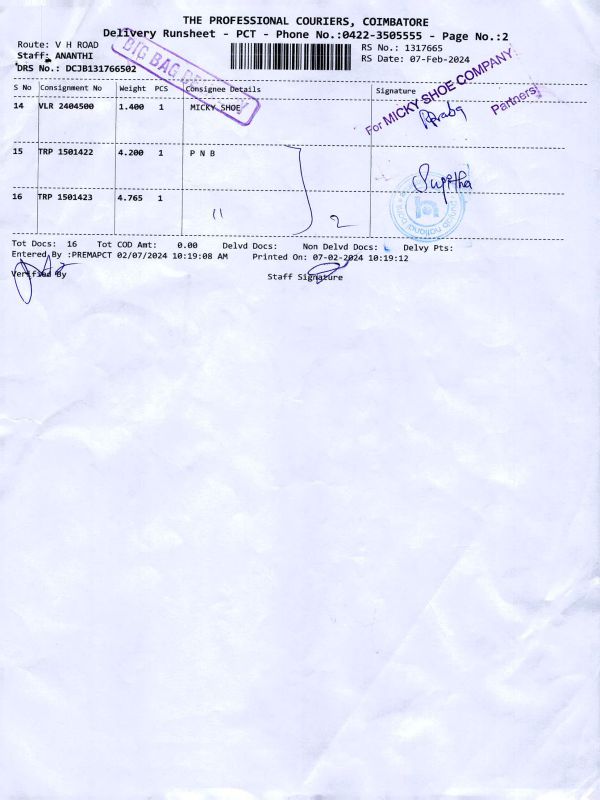 THE PROFESSIONAL COURIERS, COIMBATORE
Delivery Runsheet - PCT - Phone No.:0422-3505555 - Page No.:2
Route: V H ROAD
RS No.: 1317665
Staff: ANANTHI
RS Date: 07-Feb-2024
DRS No.: DCJB131766502
BIG BAG
S No Consignment No Weight PCS Consignee Details Signature
14 VLR 2404500 1.400 1 MICKY SHOE
For MICKY SHOE COMPANY
Partners
15 TRP 1501422 4.200 1 P N B
Sugitha
16 TRP 1501423 4.765 1
11
2
Tot Docs: 16 Tot COD Amt: 0.00 Delvd Docs: Non Delvd Docs: Delvy Pts:
Entered By :PREMAPCT 02/07/2024 10:19:08 AM Printed On: 07-02-2024 10:19:12
Verified By
Staff Signature